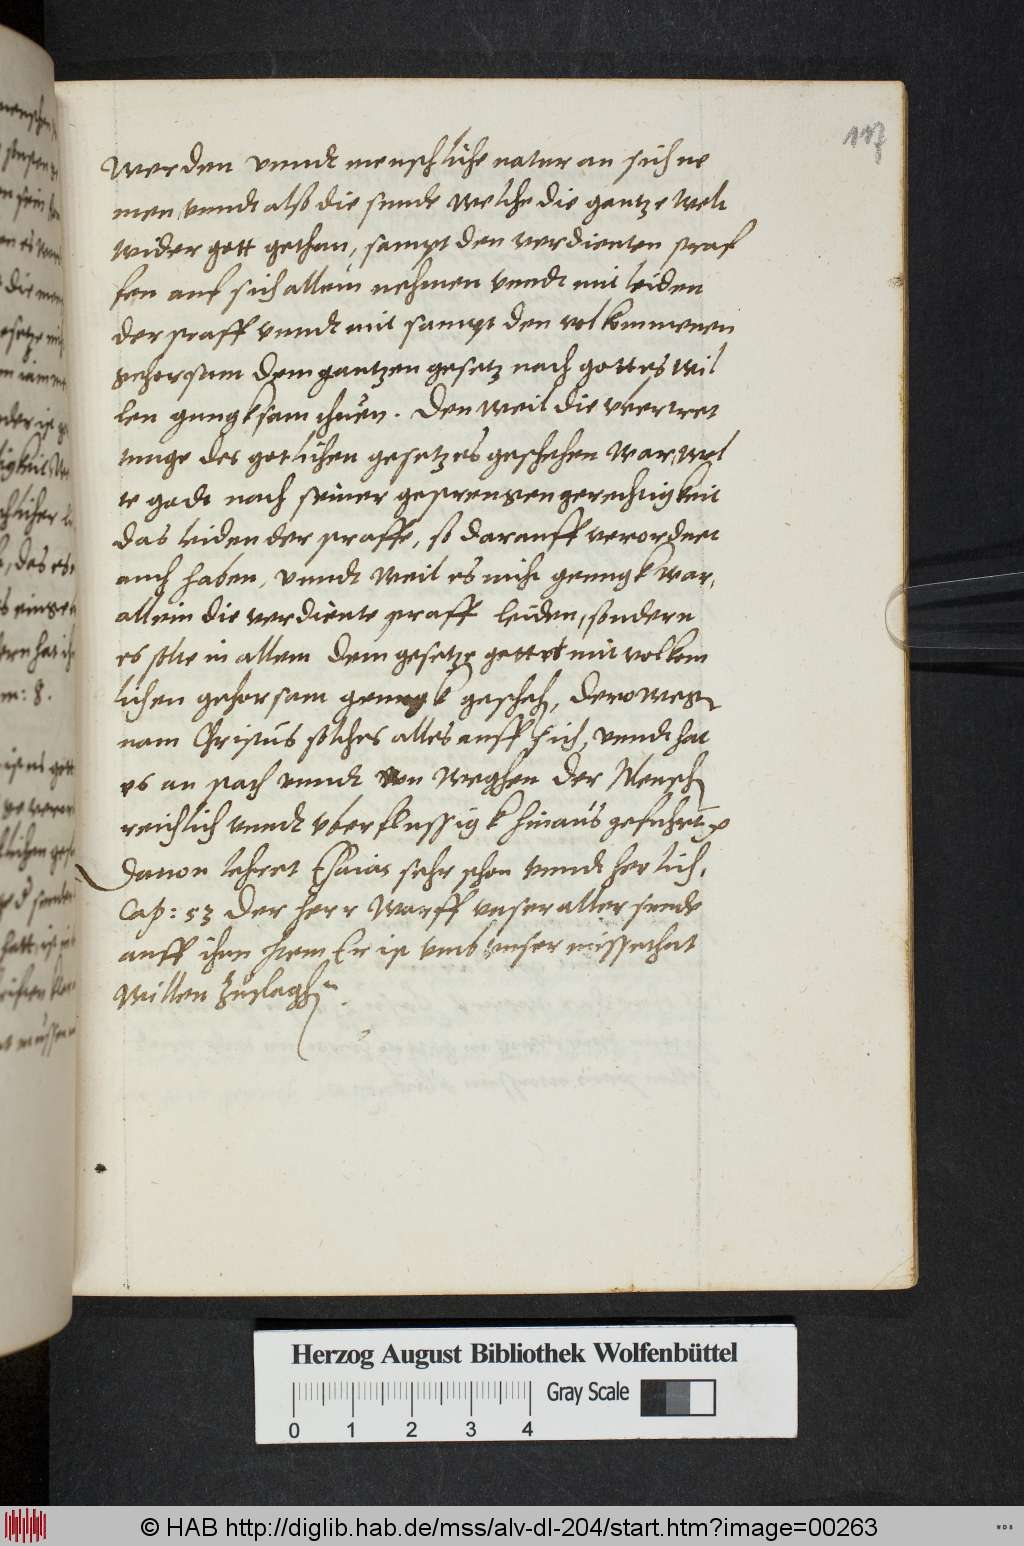 117
werden vnndt menschliche natur an sich ne
men, vnndt also die sunde welche die gantze welt
wider gott gethan, sampt den verdienten straf
fen auf sich allein nehmen vnndt mit leiden
der straff vnndt mit sampt den volkommenen
gehorsam dem gantzen gesetz nach gottes wil
len gnugksam thuen. Den weil die vbertret
tunge des gotlichen gesetzes geschehen war, wol
te godt nach seiner gestrengen gerechtigkeit
das leiden der straffe, so darauff verordnet
auch haben, vnndt weil es nicht genugk war,
allein die verdiente straff leiden, sondern
es solte in allem dem gesetze gottes mit volkom
lichen gehorsam genugk gescheh, derowegen
nam Christus solches alles auff sich, vnndt hat
es an stath vnndt von weghen der Mensch
reichlich vnndt vberflussigk hinaus gefuhrt
Dauon lehret Esaias sehr schon vnndt herlich,
Cap: 53 Der herr warff vnser aller sunde
auff ihm Item Er ist vmb vnser missethat
willen zuslagh.
Herzog August Bibliothek Wolfenbüttel
Gray Scale
0 1 2 3 4
© HAB http://diglib.hab.de/mss/alv-dl-204/start.htm?image=00263